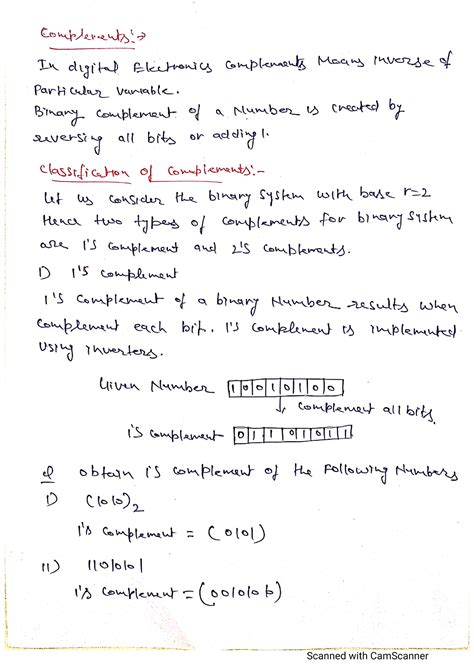 Complements:→
In digital Electronics complements Means inverse of
Particular variable.
Binary complement of a Number is created by
reversing all bits or adding 1.
Classification of Complements:-
Let us consider the binary system with base r=2
Hence two types of complements for binary system
are 1's complement and 2's complements.
1) 1's complement
1's Complement of a binary Number results when
complement each bit. 1's complement is implemented
using inverters.
Given Number 1 0 0 1 0 1 0 0
↓ complement all bits
1's complement 0 1 1 0 1 0 1 1
obtain 1's complement of the Following Numbers
1) (1010)₂
1's complement = (0101)
11) 110101
1's complement = (001010
Scanned with CamScanner